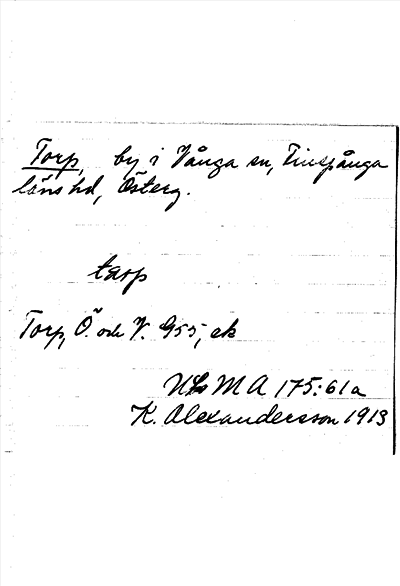 Torp, by i Vånga sn, Finspånga
läns hd, Österg.
tarp
Torp, Ö. och V. G55, ek
MA 175:61a
K. Alexandersson 1913